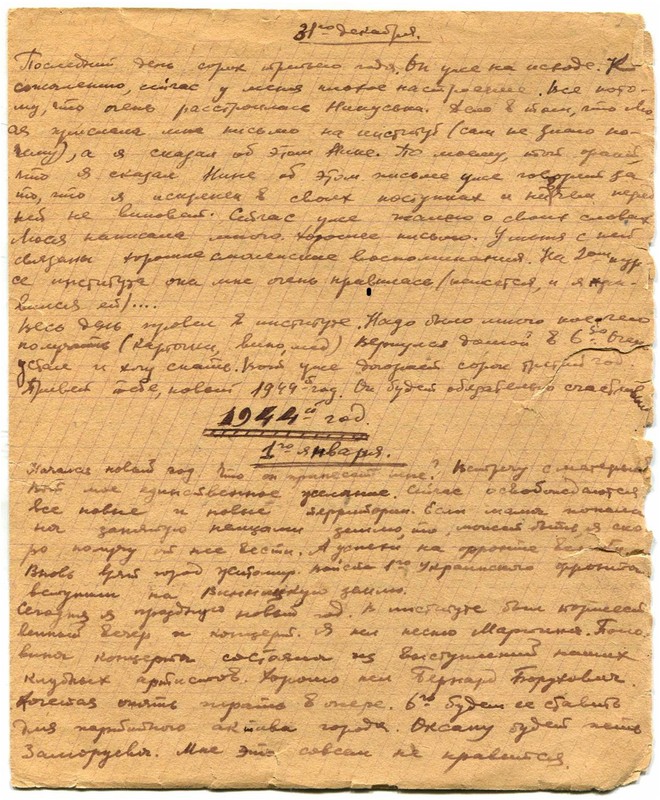 31го декабря.
Последний день сорок третьего года. Он уже на исходе. К
сожалению, сейчас у меня плохое настроение. Все пото-
му, что очень расстроилась Нинуська. Дело в том, что Лю-
ся прислала мне письмо на институт (сам не знаю по-
чему), а я сказал об этом Нине. По моему, этот
что я сказал Нине об этом письме уже говорит за
то, что я искренен в своих поступках и ничем перед
ней не виноват. Сейчас уже жалею о своих словах
Люся написала много. Хорошее письмо. У меня с ней
связаны хорошие смоленские воспоминания. На 2ом кур-
се института она мне очень нравилась (кажется, и я нра-
вился ей)....
Весь день провел в институте. Надо было много кое чего
получать (карточки, вино, мёд) Вернулся домой в 6
устал и хочу спать. Вот уже догорает сорок третий год.
Привет тебе, новый 1944й год. Он будет обязательно счастлив
1944й год.
1го января.
Начался новый год. Что он принесет мне? Встречу с матерью
вот мое единственное желание. Сейчас освобождаются
все новые и новые территории. Если мама попала
на занятую немцами землю, то, может быть, я ско-
ро получу от нее вести. А успехи на фронте
Вновь взят город Житомир. Войска 1го Украинского фронта
вступили на Винницкую землю.
Сегодня я праздную новый год. В институте был торжест
венный вечер и концерт. Я пел песню Марченко. Поло-
вина концерта состояла из выступлений наших
клубных артистов. Хорошо пел Бернард Борухович.
Хочется опять играть в опере. 6го будем ее ставить
для партийного актива города. Оксану будет петь
Мне это совсем не нравится.